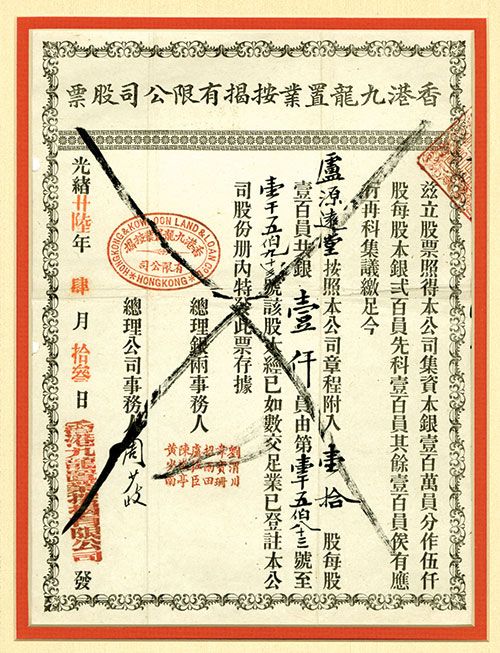 香港九龍置業按揭有限公司股票
茲立股票照得本公司集資本銀壹百萬員分作伍仟
股每股本銀貳百員先科壹百員其餘壹百員俟有應
行再科集議繳足今
盧源遠堂按照本公司章程附入壹拾股每股
壹百員共銀壹仟員由第壹千五伯八十三號至
壹千五伯九十二號該股本經已如數交足業已登註本公
司股份册內特發此票存據
總理銀兩事務人
劉渭川
韋寶珊
招雨田
盧佐臣
總理公司事務人周少岐
HONGKONG & KOWLOON LAND & LOAN CO.
香港九龍置業按揭
有限公司
HONGKONG
光緒廿陸年肆月拾叁日
香港九龍置業按揭有限公司
發